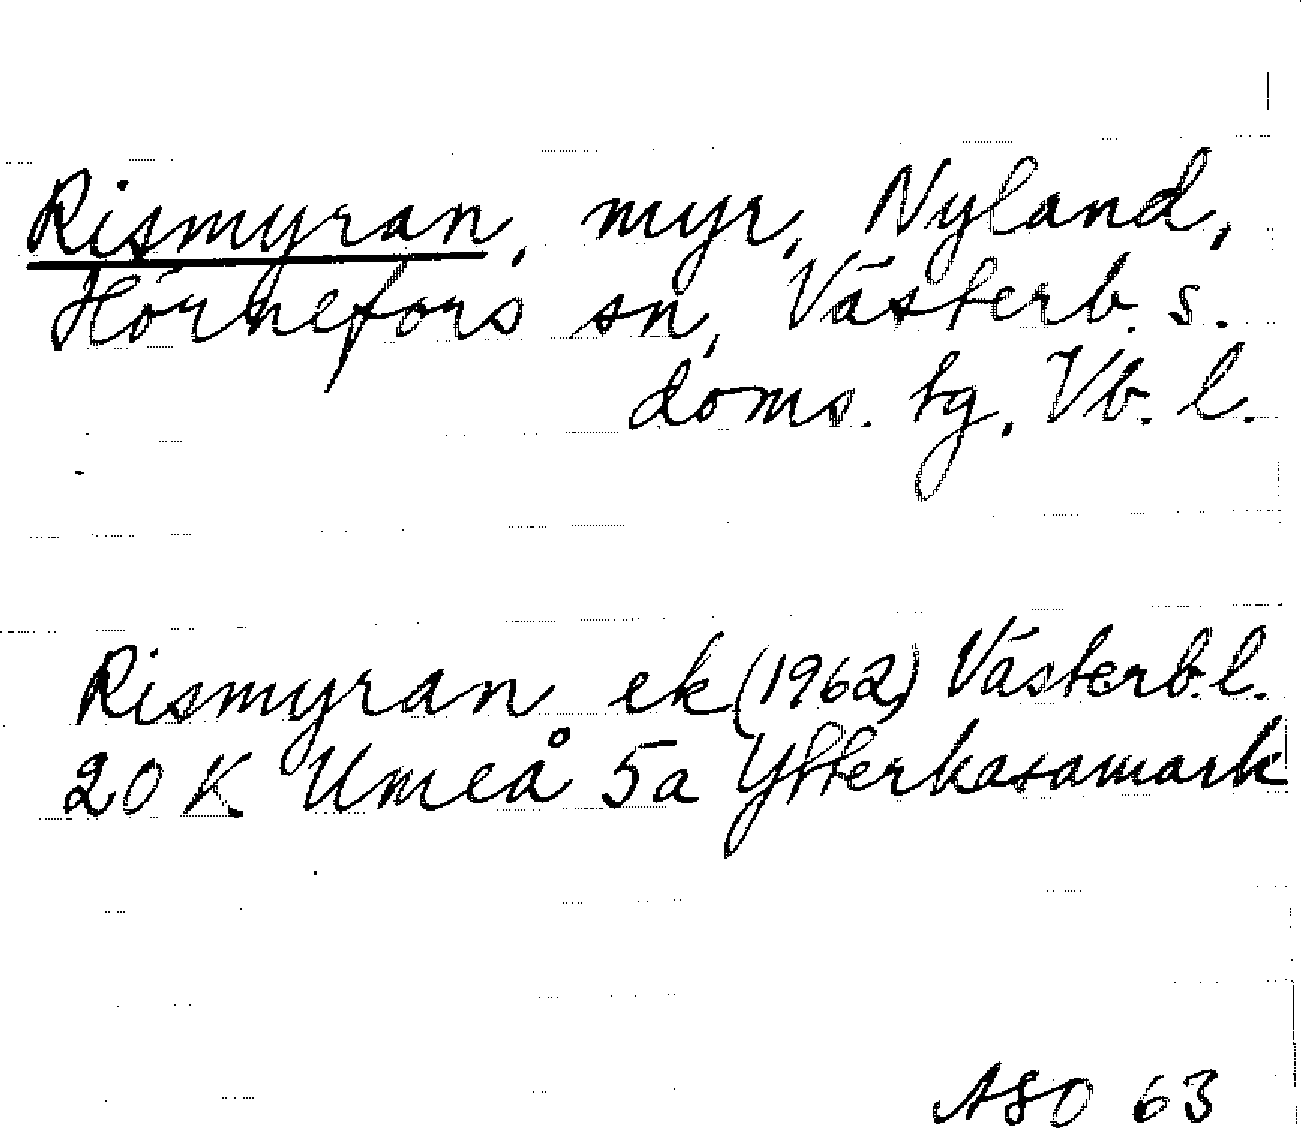 Rismyran, myr, Nyland,
Hörnefors sn, Västerb. s.
doms. tg. Vb. l.
Rismyran ek (1962) Västerb. l.
20 K Umeå 5a Ytterkasamark
ASO 63